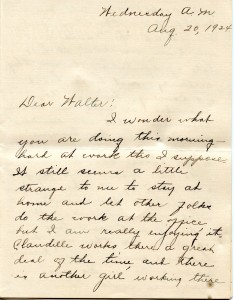 Wednesday A.M
Aug 20, 1924
Dear Walter:
I wonder what
you are doing this morning -
hard at work tho I suppose.
It still seems a little
strange to me to stay at
home and let other folks
do the work at the office
but I am really enjoying it.
Claudille works there a great
deal of the time and there
is another girl working there